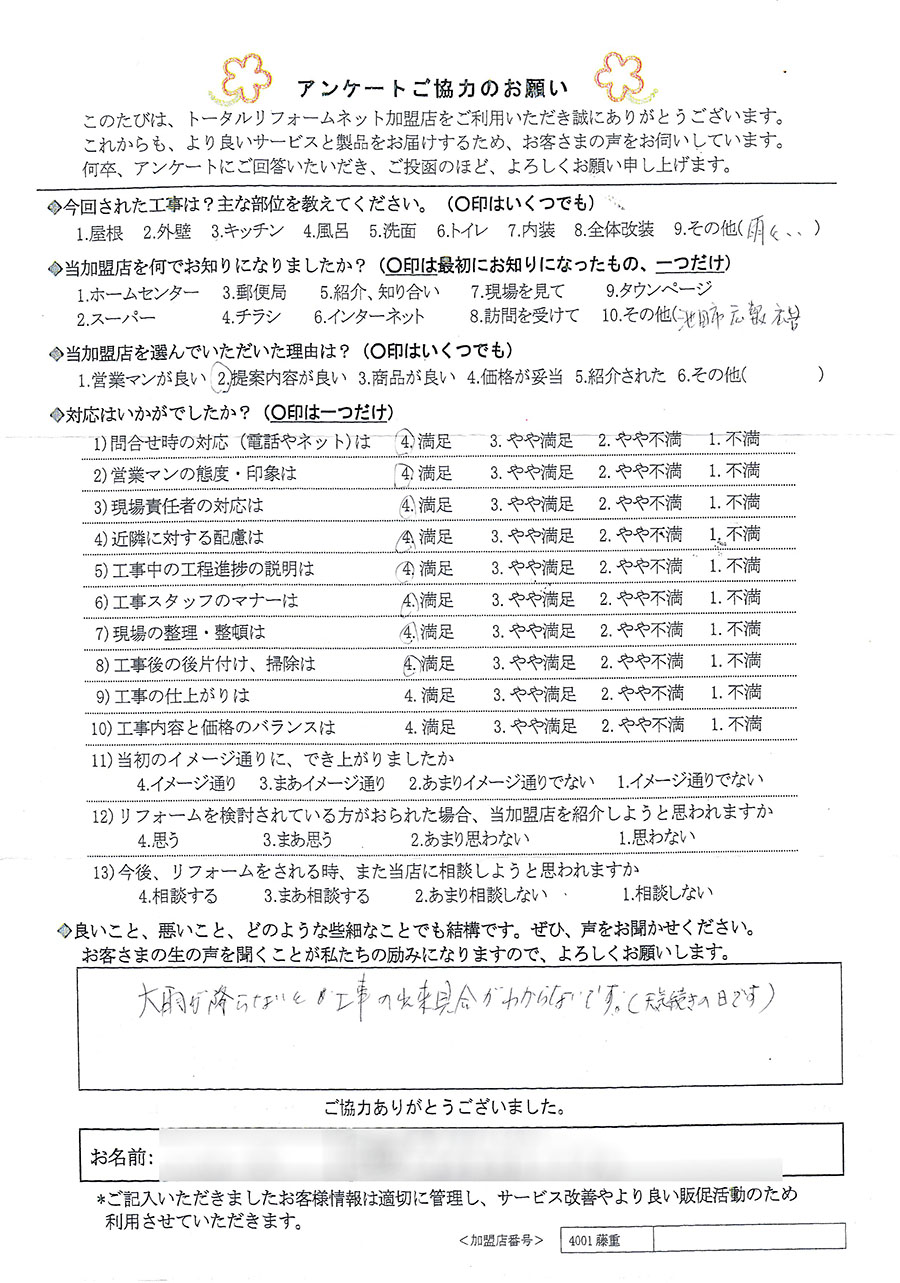 アンケートご協力のお願い
このたびは、トータルリフォームネット加盟店をご利用いただき誠にありがとうございます。
これからも、より良いサービスと製品をお届けするため、お客さまの声をお伺いしています。
何卒、アンケートにご回答いたいだき、ご投函のほど、よろしくお願い申し上げます。
◆今回された工事は？主な部位を教えてください。（〇印はいくつでも）
1.屋根 2.外壁 3.キッチン 4.風呂 5.洗面 6.トイレ 7.内装 8.全体改装 9.その他(雨とい)
◆当加盟店を何でお知りになりましたか？（〇印は最初にお知りになったもの、一つだけ）
1.ホームセンター 3.郵便局 5.紹介、知り合い 7.現場を見て 9.タウンページ
2.スーパー 4.チラシ 6.インターネット 8.訪問を受けて 10.その他(池田市広報
◆当加盟店を選んでいただいた理由は？（〇印はいくつでも）
1.営業マンが良い 2.提案内容が良い 3.商品が良い 4.価格が妥当 5.紹介された 6.その他( )
◆対応はいかがでしたか？（〇印は一つだけ）
1)問合せ時の対応（電話やネット)は 4.満足 3.やや満足 2.やや不満 1.不満
2)営業マンの態度・印象は 4.満足 3.やや満足 2.やや不満 1.不満
3)現場責任者の対応は 4.満足 3.やや満足 2.やや不満 1.不満
4)近隣に対する配慮は 4.満足 3.やや満足 2.やや不満 1.不満
5)工事中の工程進捗の説明は 4.満足 3.やや満足 2.やや不満 1.不満
6)工事スタッフのマナーは 4.満足 3.やや満足 2.やや不満 1.不満
7)現場の整理・整頓は 4.満足 3.やや満足 2.やや不満 1.不満
8)工事後の後片付け、掃除は 4.満足 3.やや満足 2.やや不満 1.不満
9)工事の仕上がりは 4.満足 3.やや満足 2.やや不満 1.不満
10)工事内容と価格のバランスは 4.満足 3.やや満足 2.やや不満 1.不満
11)当初のイメージ通りに、でき上がりましたか
4.イメージ通り 3.まあイメージ通り 2.あまりイメージ通りでない 1.イメージ通りでない
12)リフォームを検討されている方がおられた場合、当加盟店を紹介しようと思われますか
4.思う 3.まあ思う 2.あまり思わない 1.思わない
13)今後、リフォームをされる時、また当店に相談しようと思われますか
4.相談する 3.まあ相談する 2.あまり相談しない 1.相談しない
◆良いこと、悪いこと、どのような些細なことでも結構です。ぜひ、声をお聞かせください。
お客さまの生の声を聞くことが私たちの励みになりますので、よろしくお願いします。
大雨が降らないと 工事の出来具合がわからないです。(天気続きの日です)
ご協力ありがとうございました。
お名前:
*ご記入いただきましたお客様情報は適切に管理し、サービス改善やより良い販促活動のため
利用させていただきます。
＜加盟店番号＞ 4001 藤重